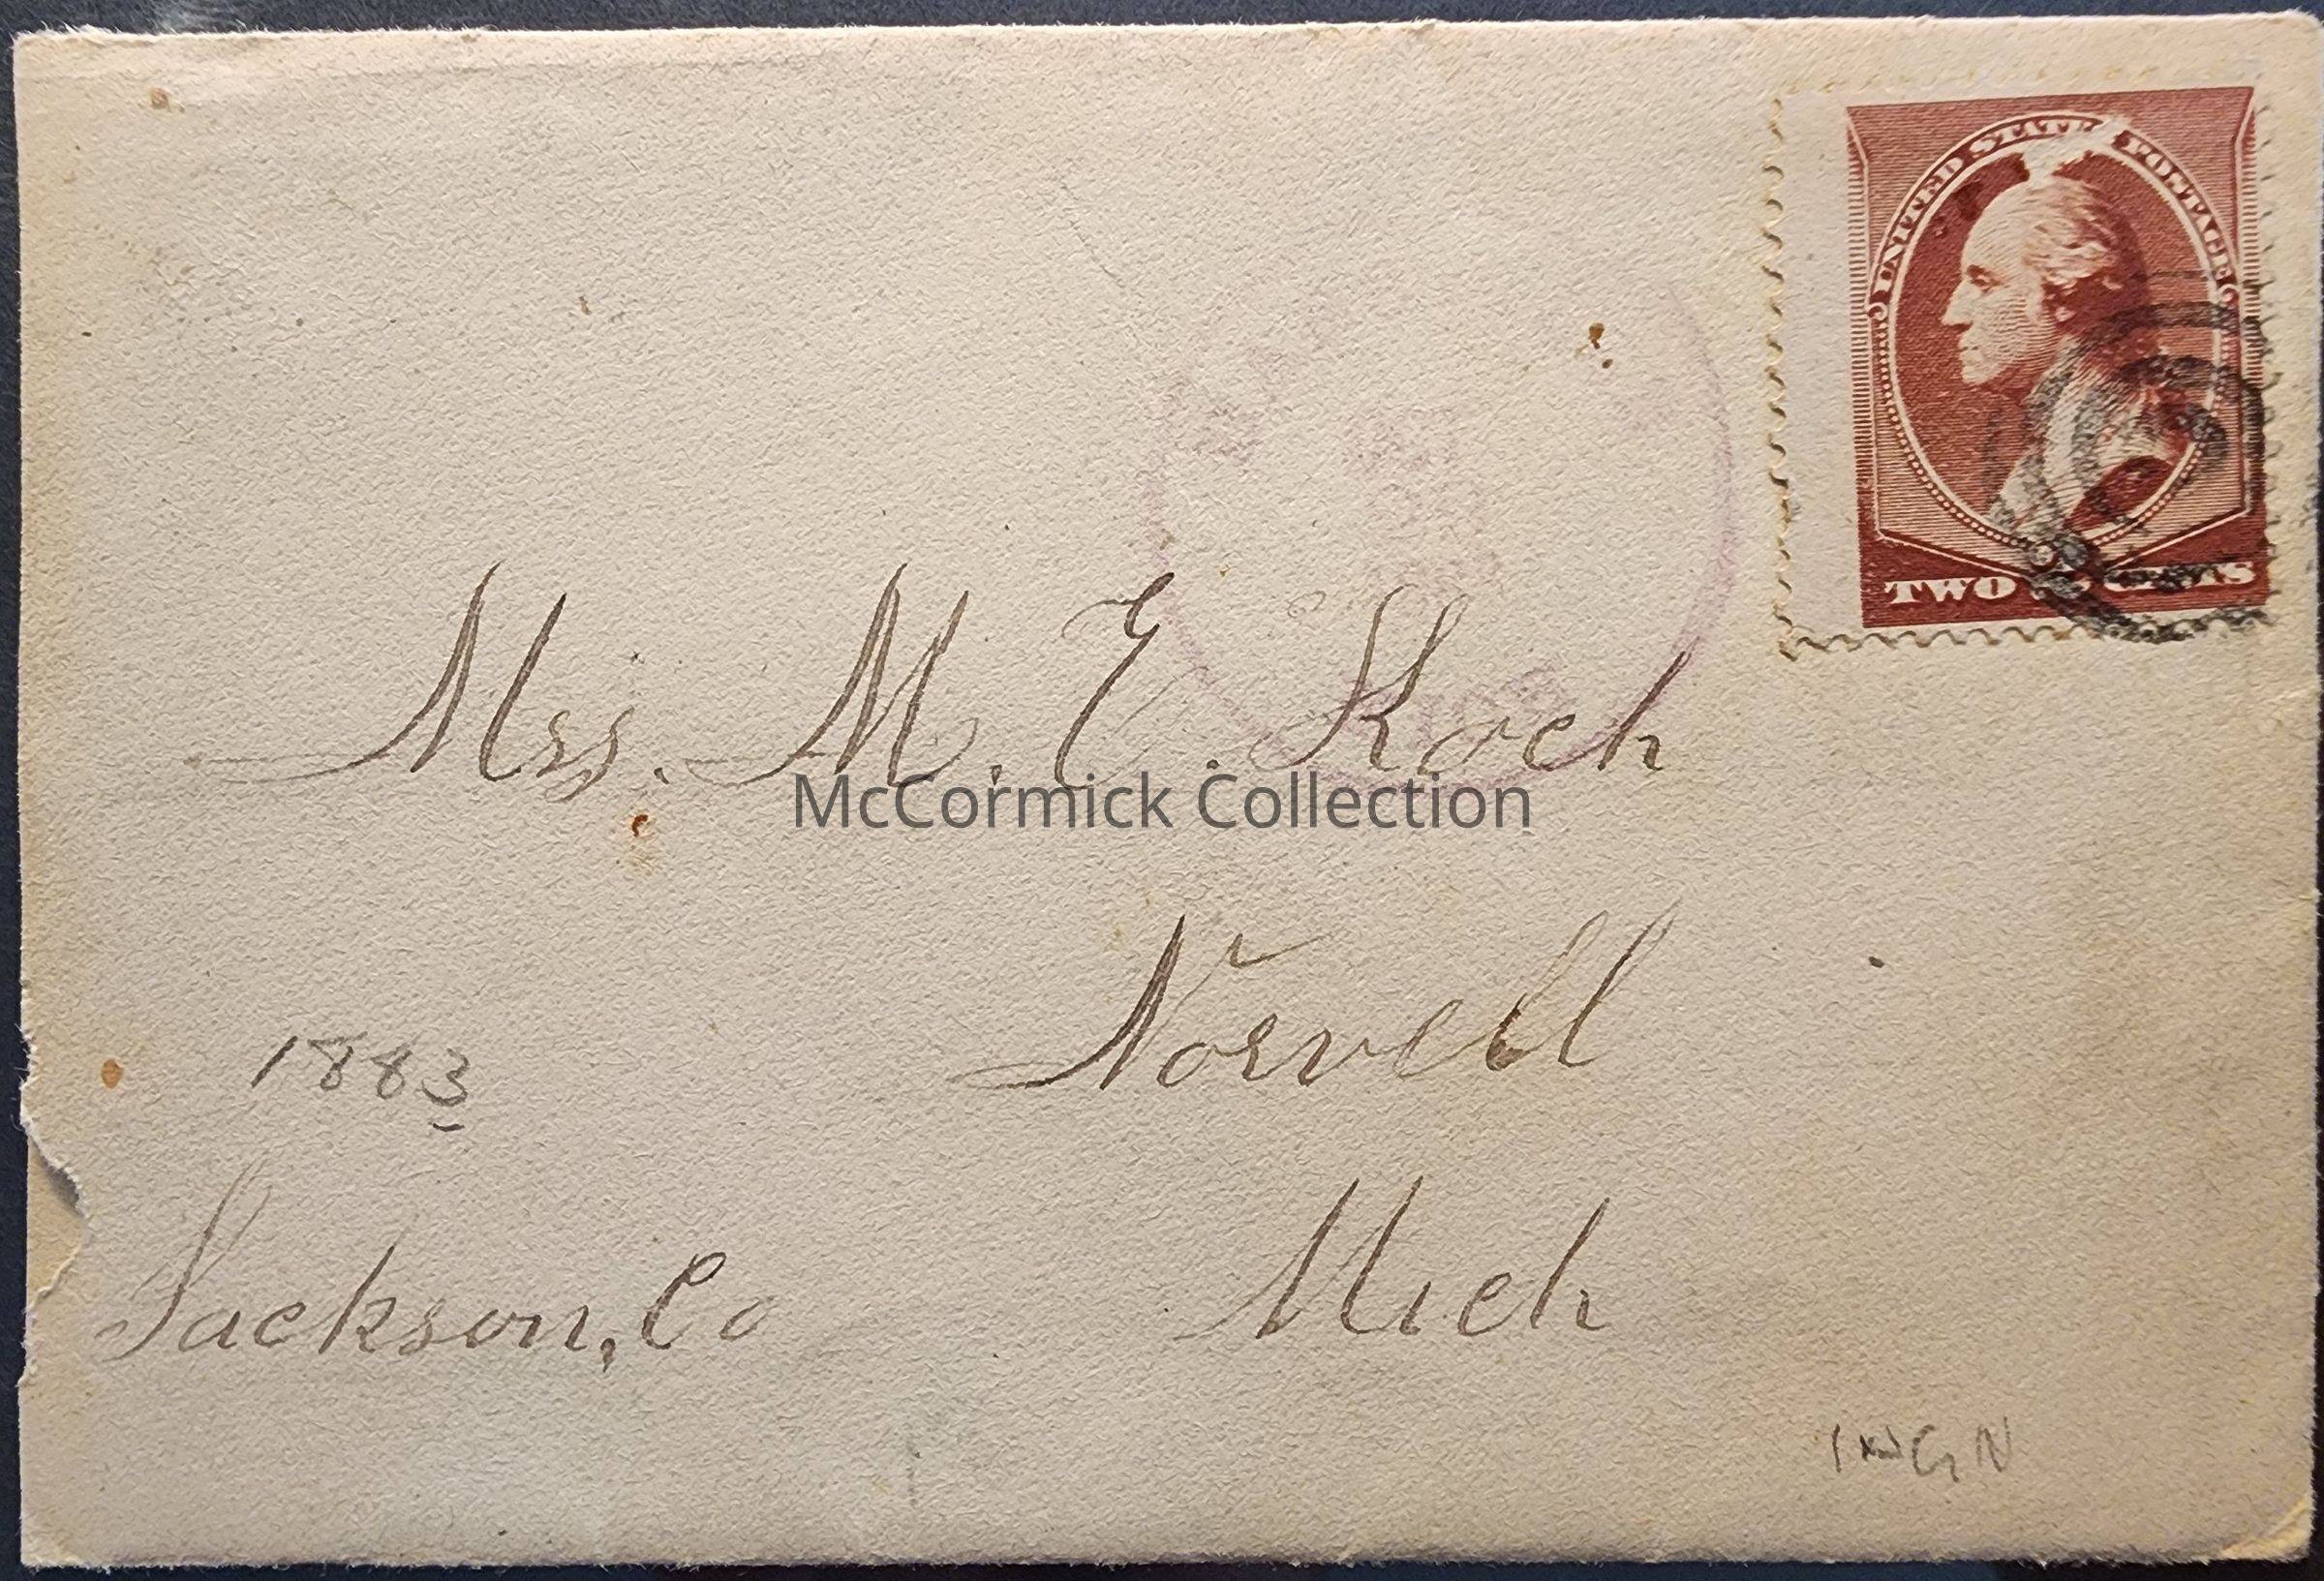 UNITED STATES POSTAGE
TWO CENTS
Mrs. M. E. Koch
McCormick Collection
Norvell
1883
Jackson, Co
Mich